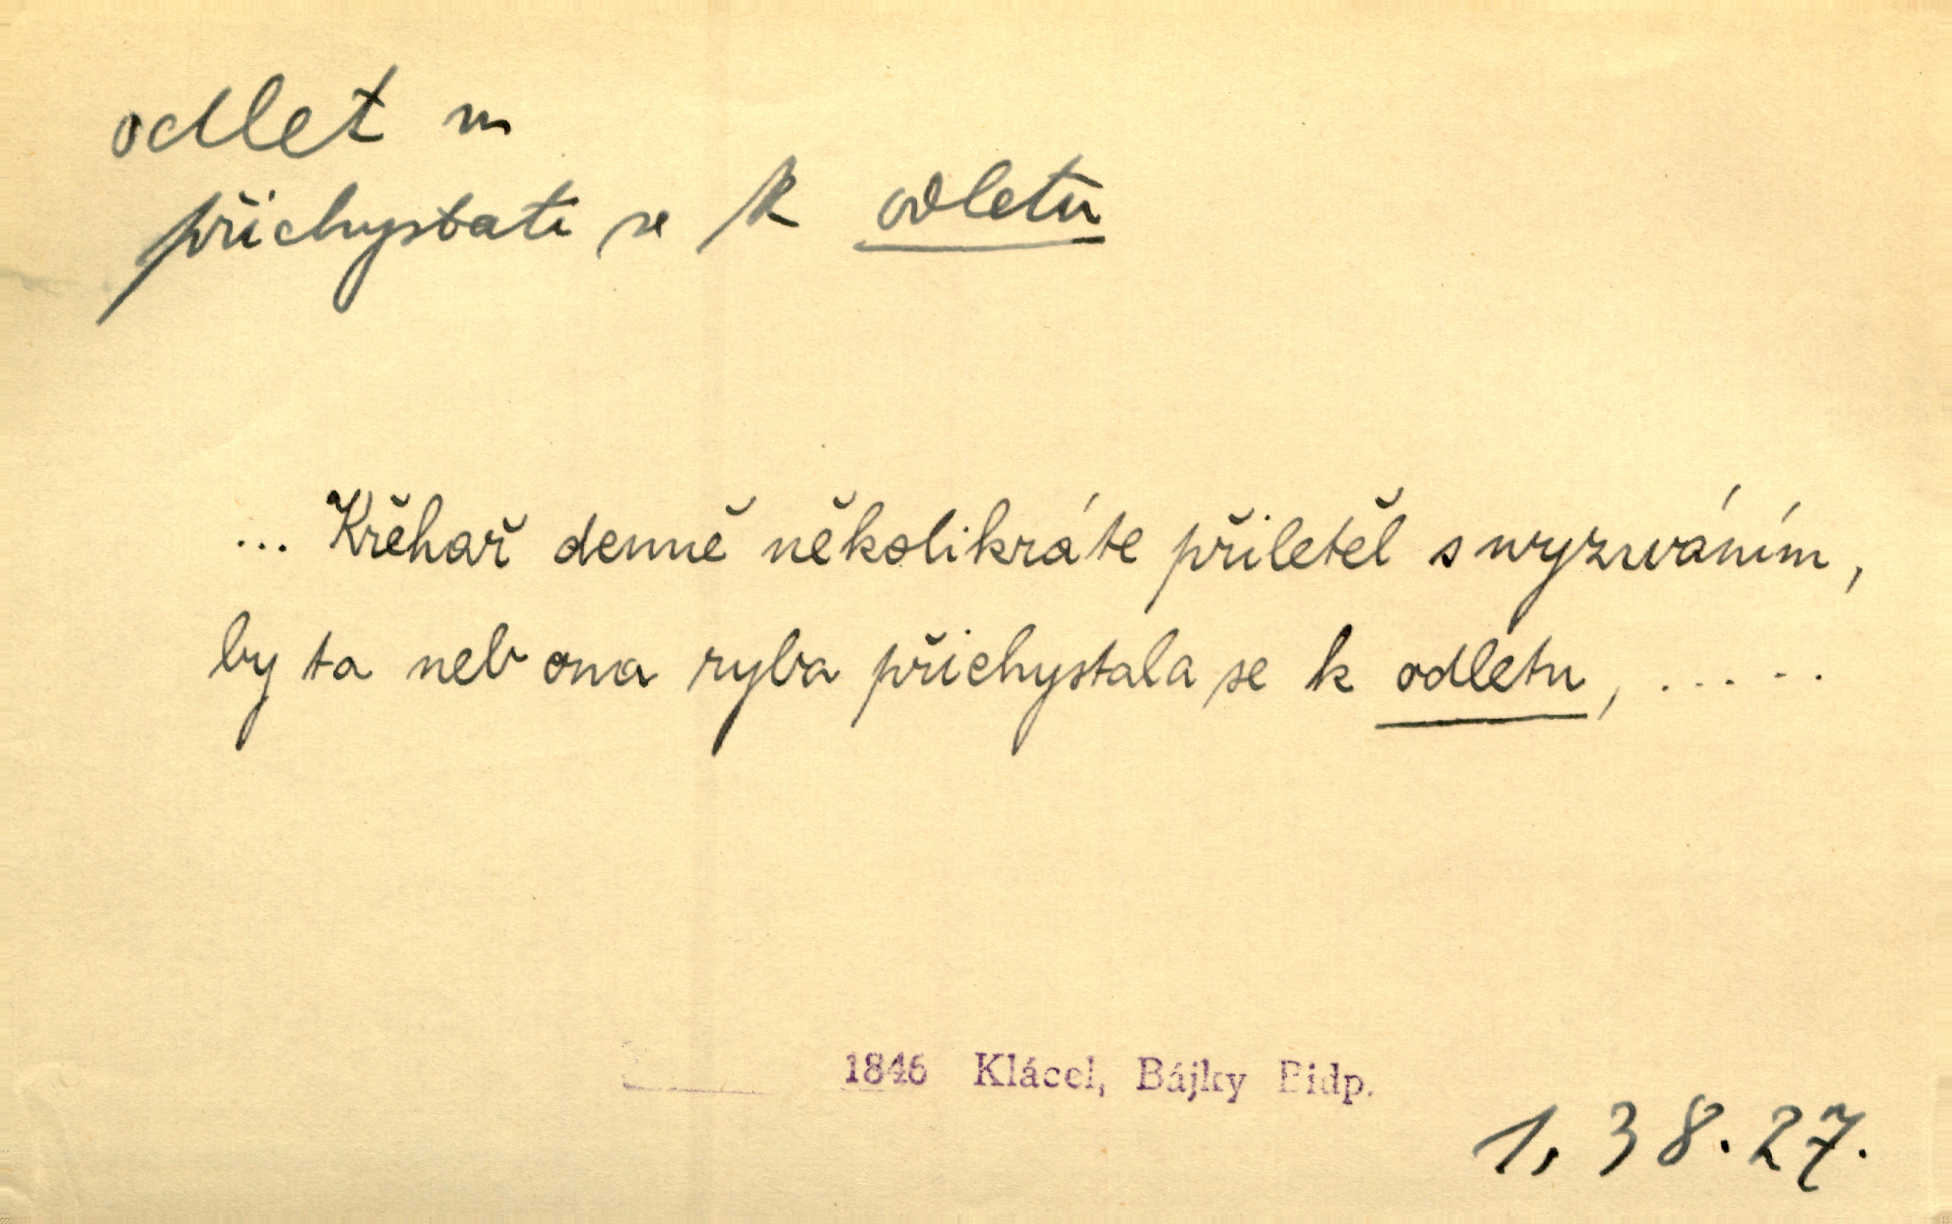 odlet m
přichystati se k odletu
... Křehař denně několikráte přiletěl s wyzwáním,
by ta neb ona ryba přichystala se k odletu, .....
1846 Klácel, Bájky Bidp.
1, 38. 27.